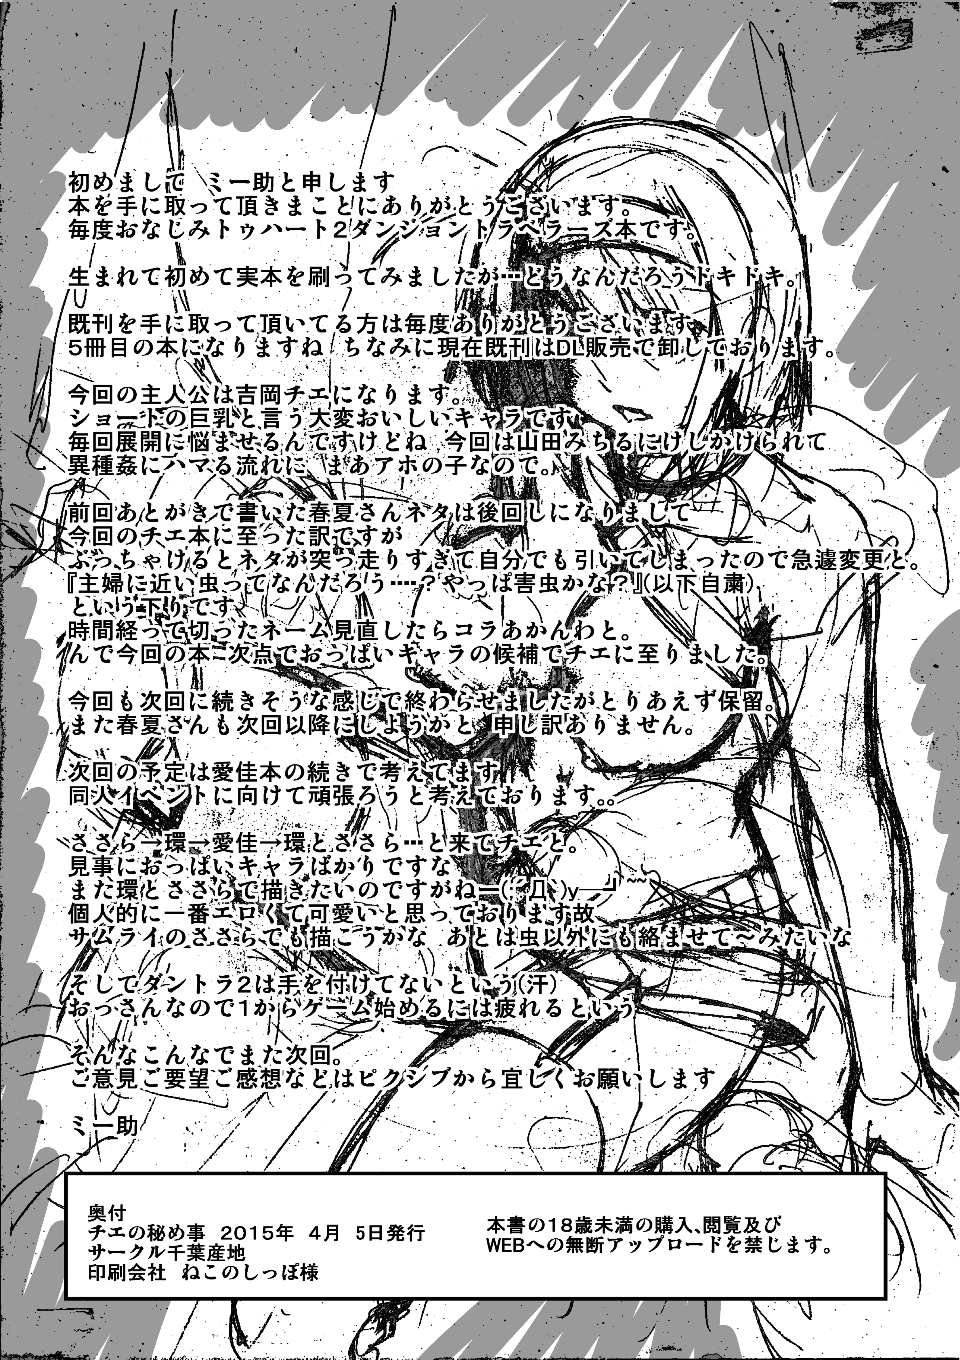 初めまして　ミー助と申します
本を手に取って頂きまことにありがとうございます。
毎度おなじみトゥハート2ダンジョントラベラーズ本です。
生まれて初めて実本を刷ってみましたが…どうなんだろうドキドキ。
既刊を手に取って頂いてる方は毎度ありがとうございます。
5冊目の本になりますね　ちなみに現在既刊はDL販売で卸しております。
今回の主人公は吉岡チエになります。
ショートの巨乳と言う大変おいしいキャラです
毎回展開に悩ませるんですけどね　今回は山田みちるにけしかけられて
異種姦にハマる流れに　まあアホの子なので。
前回あとがきで書いた春夏さんネタは後回しになりまして
今回のチエ本に至った訳ですが
ぶっちゃけるとネタが突っ走りすぎて自分でも引いてしまったので急遽変更と。
『主婦に近い虫ってなんだろう…？やっぱ害虫かな？』(以下自粛)
という下りです
時間経って切ったネーム見直したらコラあかんわと。
んで今回の本…次点でおっぱいキャラの候補でチエに至りました。
今回も次回に続きそうな感じで終わらせましたがとりあえず保留。
また春夏さんも次回以降にしようかと　申し訳ありません。
次回の予定は愛佳本の続きで考えてます
同人イベントに向けて頑張ろうと考えております。。
ささら→環→愛佳→環とささら…と来てチエと。
見事におっぱいキャラばかりですな
また環とささらで描きたいのですがねー(´Д`)y━┛~~
個人的に一番エロくて可愛いと思っております故
サムライのささらでも描こうかな　あとは虫以外にも絡ませて～みたいな
そしてダントラ2は手を付けてないという(汗)
おっさんなので1からゲーム始めるには疲れるという
そんなこんなでまた次回。
ご意見ご要望ご感想などはピクシブから宜しくお願いします
ミー助
奥付
チエの秘め事　2015年　4月　5日発行
サークル千葉産地
印刷会社　ねこのしっぽ様
本書の18歳未満の購入、閲覧及び
WEBへの無断アップロードを禁じます。